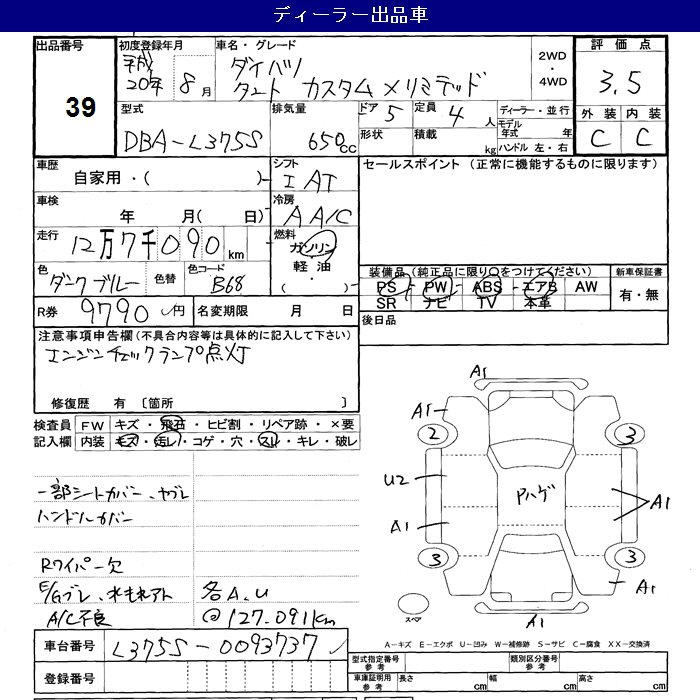 ディーラー出品車
出品番号
39
初度登録年月
平成
20年 8月
車名・グレード
ダイハツ
タント カスタムメリミテッド
2WD
・
4WD
評価点
3.5
外装 内装
C C
型式
DBA-L375S
排気量
650cc
ドア 5
定員 4人
ディーラー・並行
モデル
年式 年
形状
積載 kg
ハンドル 左・右
車歴
自家用・( )
車検
年 月( 日)
走行
12万7千090km
色
ダークブルー
色替
色コード
B68
シフト
I AT
冷房
AA/C
燃料
ガソリン
軽油
( )
セールスポイント (正常に機能するものに限ります)
装備品 (純正品に限り○をつけてください)
PS PW ABS エアB AW
SR ナビ TV 本革
新車保証書
有・無
後日品
R券 9790円
名変期限 月 日
注意事項申告欄(不具合内容等は具体的に記入して下さい)
エンジンチェックランプ点灯
修復歴 有 〔箇所 〕
検査員
記入欄
FW キズ・飛石・ヒビ割・リペア跡・×要
内装 キズ・汚レ・コゲ・穴・スレ・キレ・破レ
一部シートカバー、ヤブレ
ハンドルカバー
Rワイパー欠
E/Gブレ、水もれアト
A/C不良
各A.U
@127.091km
A1
A1
2
3
U2
Pハゲ
A1
A1
3
3
A1
A1
スペア
A-キズ E-エクボ U-凹み W-補修跡 S-サビ C-腐食 XX-交換済
車台番号 L375S-0093737
登録番号
型式指定番号
参考
類別区分番号
参考
車庫証明用
参考
長さ cm 幅 cm 高さ cm